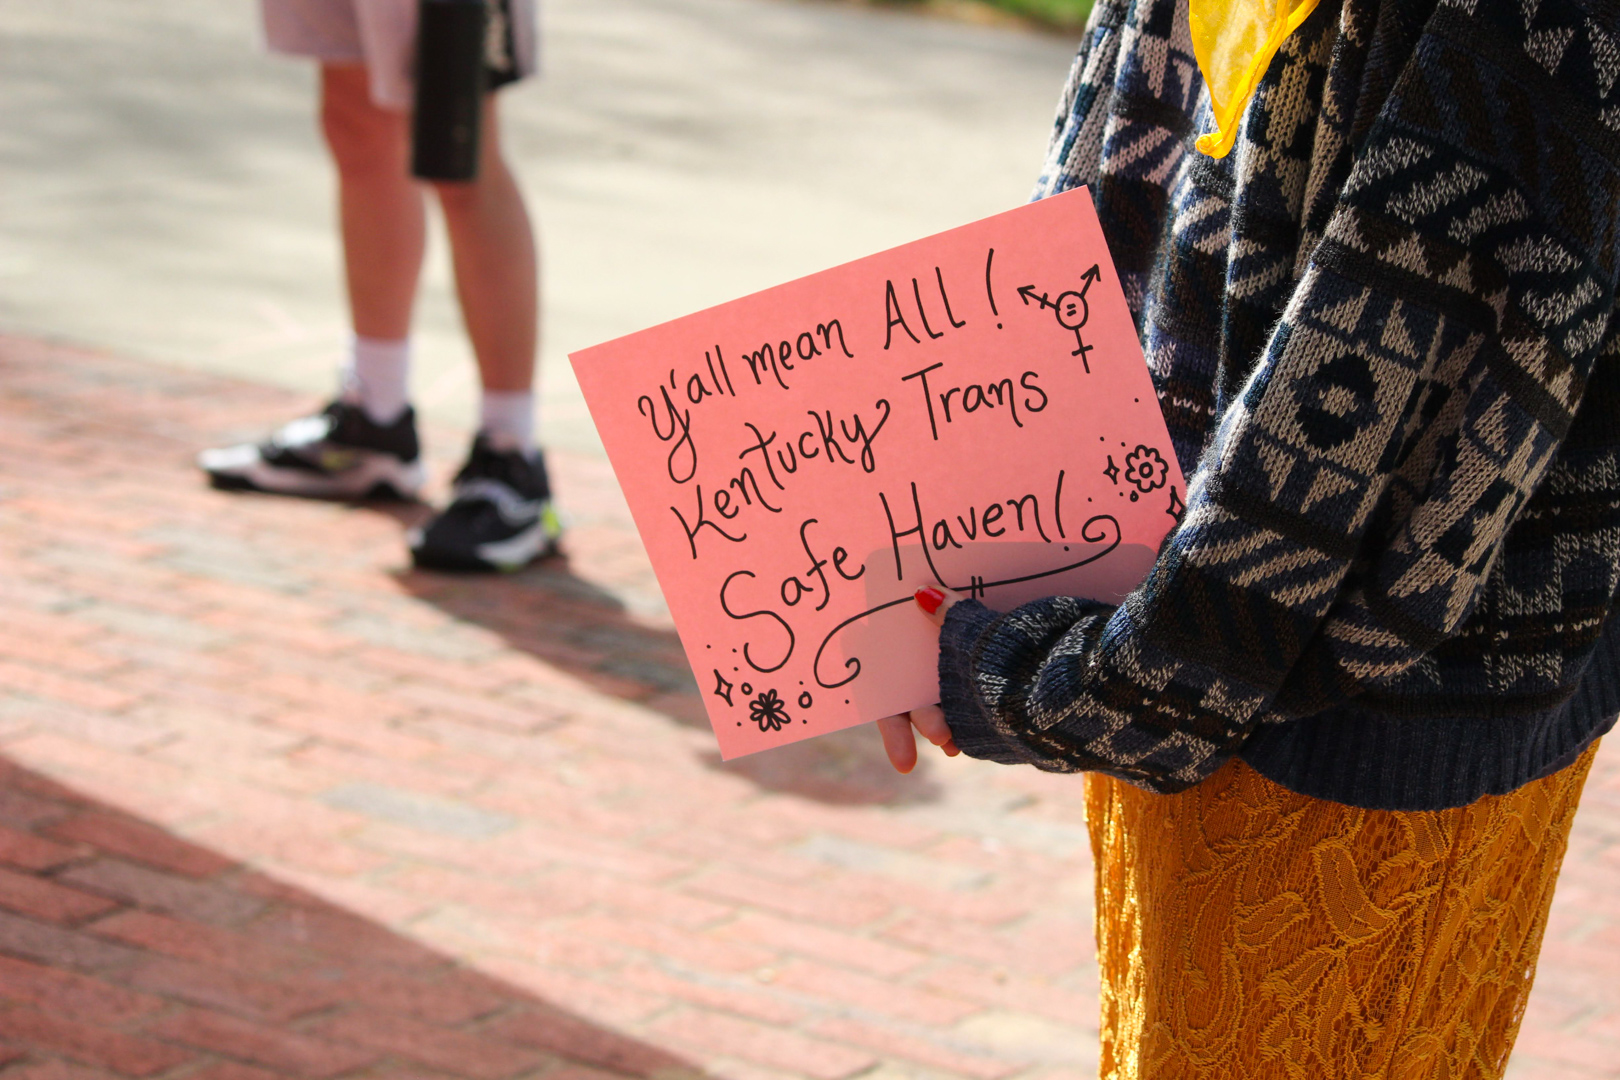 Y'all mean All!
Kentucky Trans
Safe Haven!